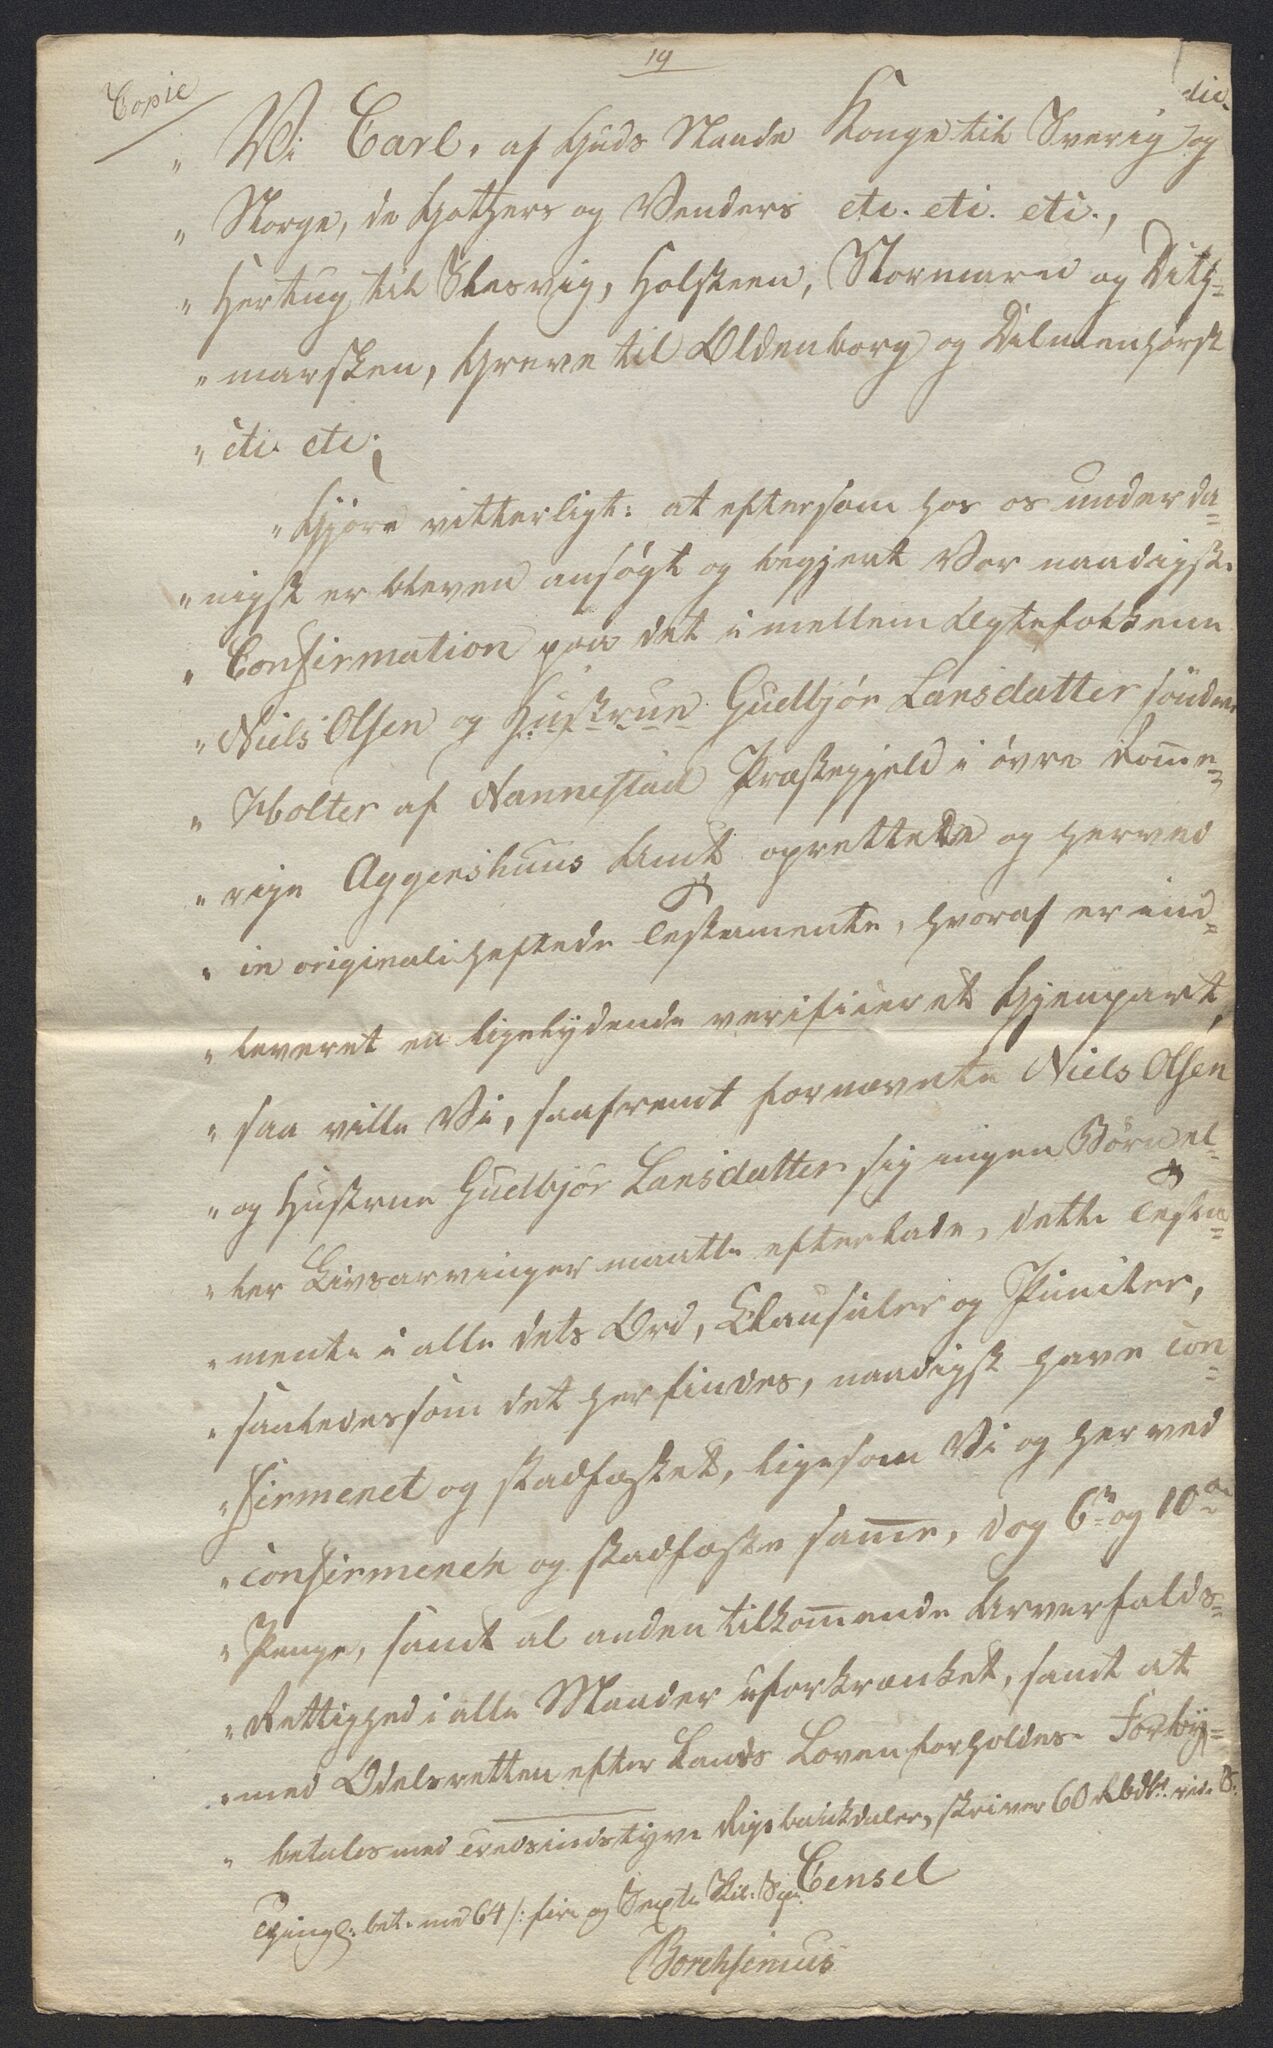 19
Copie
die
„ Vi Carl, af Guds Naade Konge til Sverig og
„ Norge, de Gothers og Venders etc. etc. etc.,
„ Hertug til Slesvig, Holsteen, Stormarn og Dith=
„ marsken, Greve til Oldenborg og Delmenhorst
„ etc. etc.
„ Gjøre vitterligt: at eftersom hos os underda=
„ nigst er bleven ansøgt og begjert Vor naadigste
„ Confirmation paa det imellem Ægtefolkene
„ Niels Olsen og Hustrue Gudbjør Larsdatter søndre
„ Holter af Nannestad Præstegjeld i øvre Rome=
„ rige Aggershuus Amt oprettede og herved
„ in originali heftede Testamente, hvoraf er ind=
„ leveret en ligelydende verificeret Gjenpart,
„ saa ville Vi, saafremt fornævnte Niels Olsen
„ og Hustrue Gudbjør Larsdatter sig ingen Børn el=
„ ler Livsarvinger maatte efterlade, dette Testa=
„ mente i alle dets Ord, Clausuler og Puncter,
„ saaledes som det her findes, naadigst have con=
„ firmeret og stadfæstet, ligesom Vi og herved
„ confirmerer og stadfæste samme, dog 6te og 10de
„ Penge, samt al anden tilkommende Arverfalds=
„ Rettighed i alle Maader uforkrænket, samt at
„ med Odelsretten efter Lands Loven forholdes. Forby=
„ betales med tredsindstyve Rigsbankdaler, skriver 60 Rbdlr.
Thingl. bet. med 64 /: fire og Sexti Skil. Sp. Censel
Borchsenius